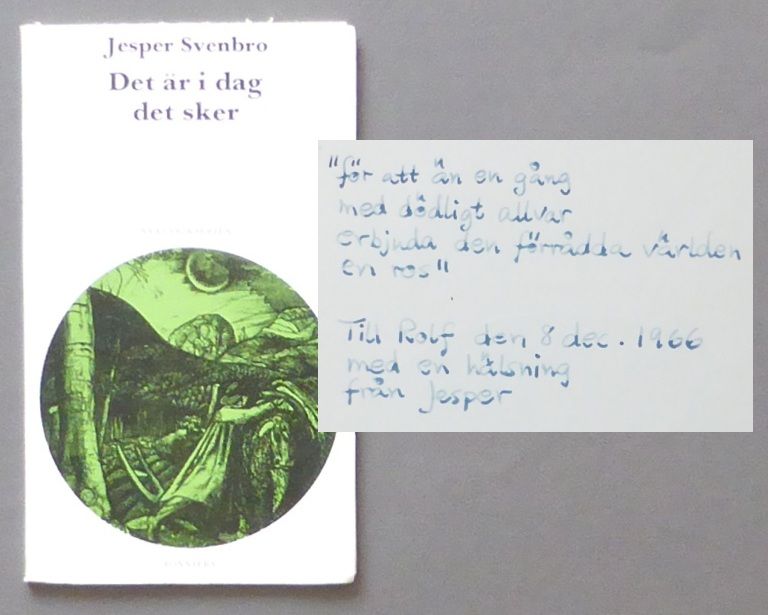 Jesper Svenbro
Det är i dag
det sker
BONNIERS
"för att än en gång
med dödligt allvar
erbjuda den förrådda världen
en ros"
Till Rolf den 8 dec. 1966
med en hälsning
från Jesper